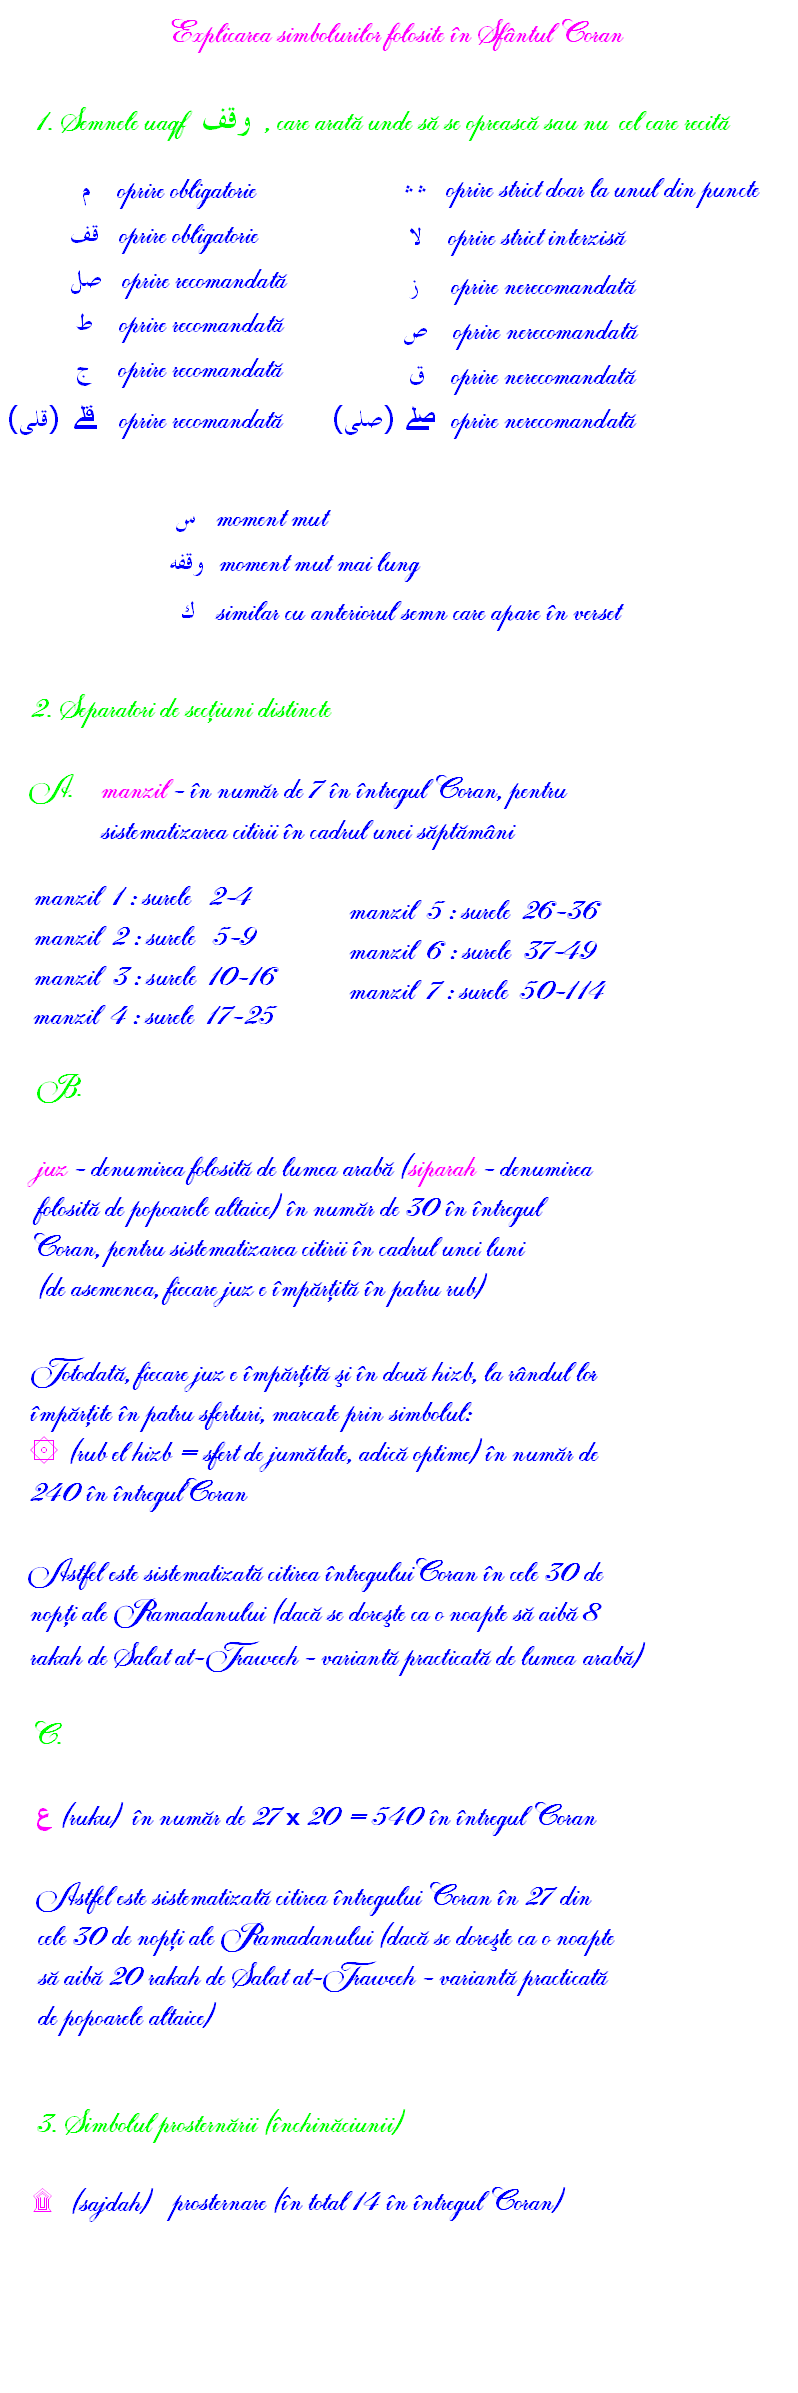 Explicarea simbolurilor folosite în Sfântul Coran
1. Semnele uaqf وقف , care arată unde să se oprească sau nu cel care recită
م oprire obligatorie
قف oprire obligatorie
صل oprire recomandată
ط oprire recomandată
ج oprire recomandată
(قلى) ۗ oprire recomandată
∴ ∴ oprire strict doar la unul din puncte
لا oprire strict interzisă
ز oprire nerecomandată
ص oprire nerecomandată
ق oprire nerecomandată
(صلى) ۖ oprire nerecomandată
س moment mut
وقفه moment mut mai lung
ك similar cu anteriorul semn care apare în verset
2. Separatori de secţiuni distincte
A. manzil - în număr de 7 în întregul Coran, pentru
sistematizarea citirii în cadrul unei săptămâni
manzil 1 : surele 2-4
manzil 2 : surele 5-9
manzil 3 : surele 10-16
manzil 4 : surele 17-25
manzil 5 : surele 26-36
manzil 6 : surele 37-49
manzil 7 : surele 50-114
B.
juz - denumirea folosită de lumea arabă (siparah - denumirea
folosită de popoarele altaice) în număr de 30 în întregul
Coran, pentru sistematizarea citirii în cadrul unei luni
(de asemenea, fiecare juz e împărţită în patru rub)
Totodată, fiecare juz e împărţită şi în două hizb, la rândul lor
împărţite în patru sferturi, marcate prin simbolul:
۞ (rub el hizb = sfert de jumătate, adică optime) în număr de
240 în întregul Coran
Astfel este sistematizată citirea întregului Coran în cele 30 de
nopţi ale Ramadanului (dacă se doreşte ca o noapte să aibă 8
rakah de Salat at-Traweeh - variantă practicată de lumea arabă)
C.
ع (ruku) în număr de 27 x 20 = 540 în întregul Coran
Astfel este sistematizată citirea întregului Coran în 27 din
cele 30 de nopţi ale Ramadanului (dacă se doreşte ca o noapte
să aibă 20 rakah de Salat at-Traweeh - variantă practicată
de popoarele altaice)
3. Simbolul prosternării (închinăciunii)
۩ (sajdah) prosternare (în total 14 în întregul Coran)